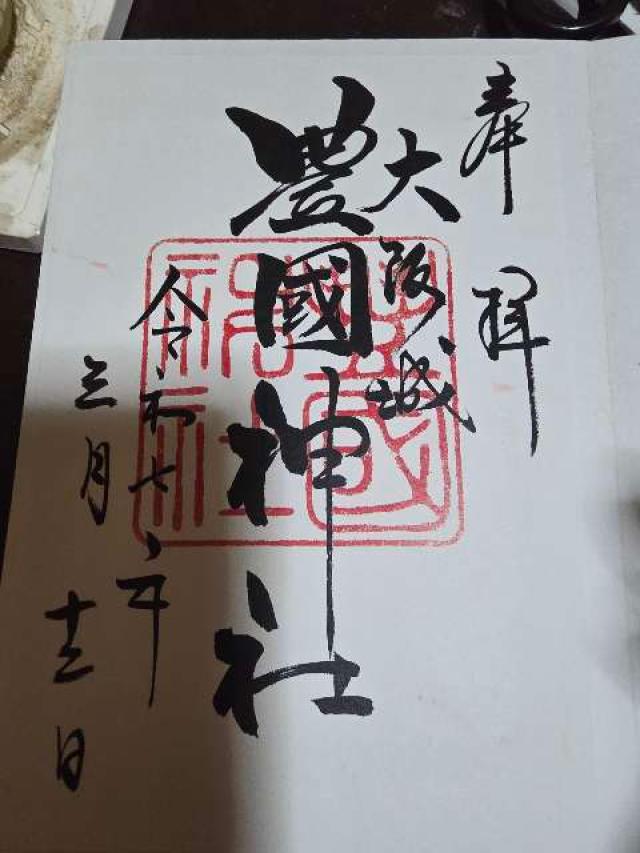 奉拝
大阪城
豊國神社
令和七年
三月十三日
豊國神社